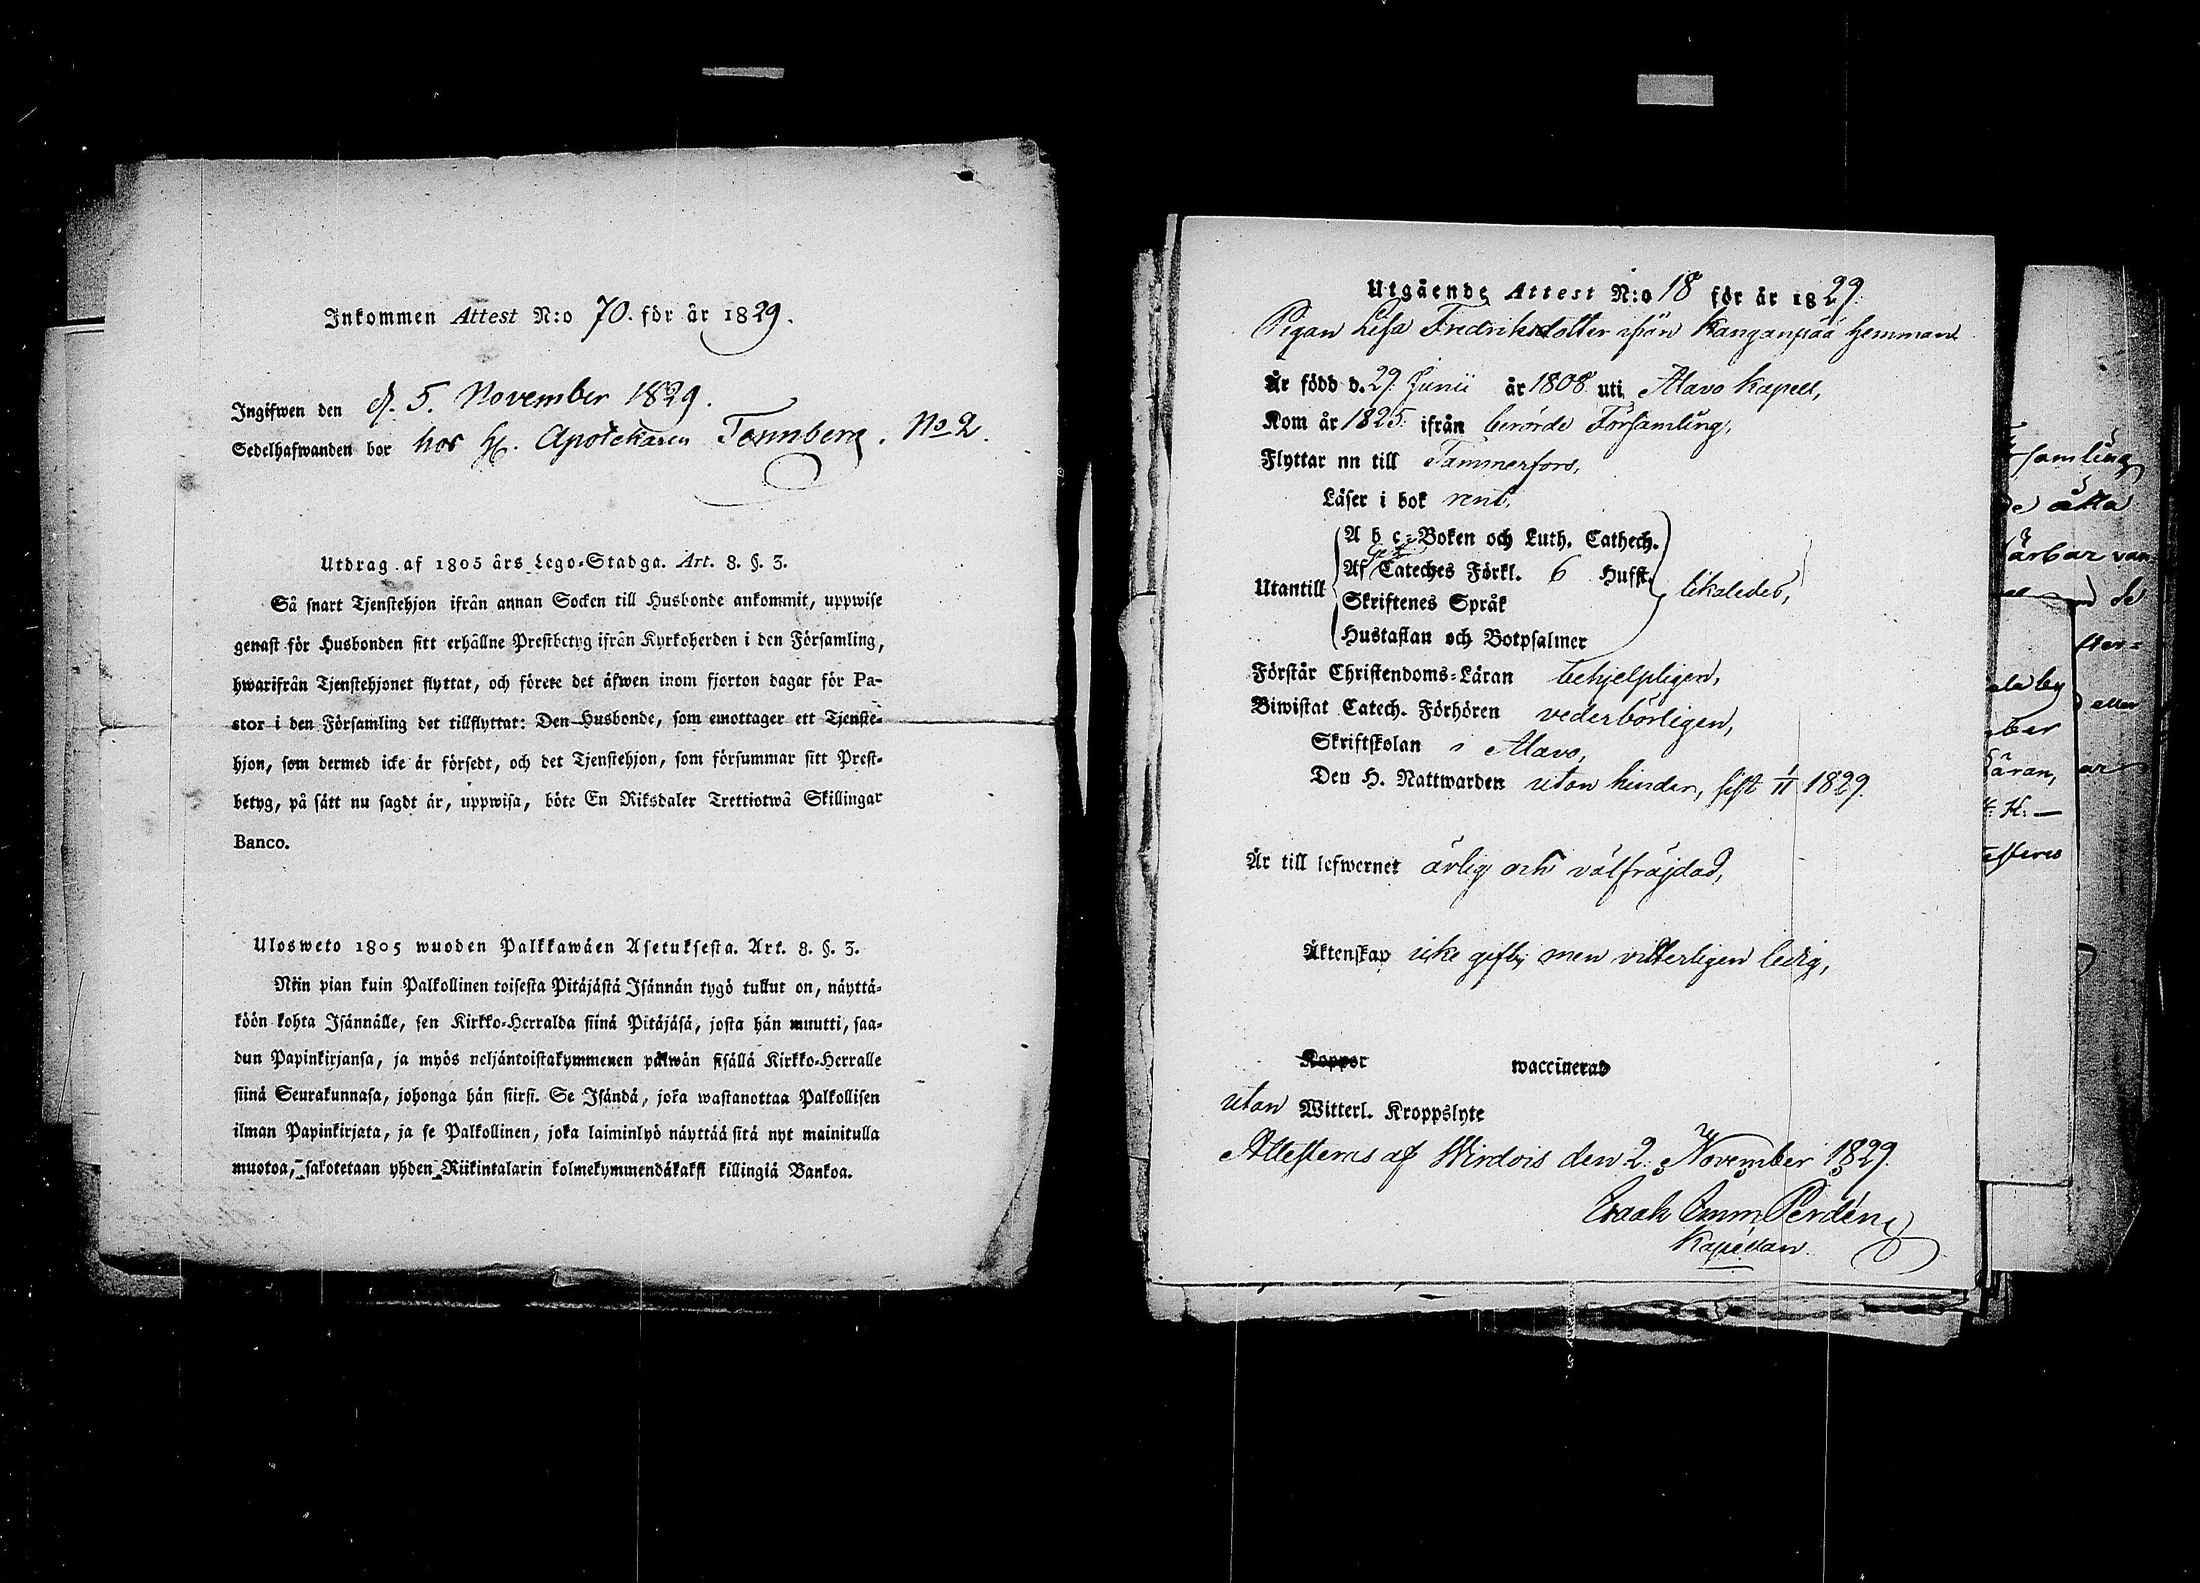 Inkommen Attest N:o 70. för år 1829.
Ingifwen den d. 5. November 1829.
Sedelhafwanden bor hos H. Apotekaren Tennberg. No 2.
Utdrag af 1805 års Lego-Stadga. Art. 8. §. 3.
Så snart Tjenstehjon ifrån annan Socken till Husbonde ankommit, uppwise
genast för Husbonden sitt erhållne Prestbetyg ifrån Kyrkoherden i den Församling,
hwarifrån Tjenstehjonet flyttat, och förete det äfwen inom fjorton dagar för Pa-
stor i den Församling det tillflyttat: Den Husbonde, som emottager ett Tjenste-
hjon, som dermed icke är försedt, och det Tjenstehjon, som försummar sitt Prest-
betyg, på sätt nu sagdt är, uppwisa, böte En Riksdaler Trettiotwå Skillingar
Banco.
Ulosweto 1805 wuoden Palkkawäen Asetuksesta. Art. 8. §. 3.
Niin pian kuin Palkollinen toisesta Pitäjästä Isännän tygö tullut on, näyttä-
köön kohta Isännälle, sen Kirkko-Herralda siinä Pitäjäsä, josta hän muutti, saa-
dun Papinkirjansa, ja myös neljäntoistakymmenen päiwän sisällä Kirkko-Herralle
siinä Seurakunnasa, johonga hän siirsi. Se Isändä, joka wastanottaa Palkollisen
ilman Papinkirjata, ja se Palkollinen, joka laiminlyö näyttää sitä nyt mainitulla
muotoa, sakotetaan yhden Riikintalarin kolmekymmendäkaksi killingiä Bankoa.
Utgående Attest N:o 18 för år 1829.
Pigan Lisa Fredriksdotter ifrån Kanganpää hemman
Är född d. 29. Junii år 1808 uti Alavo Kapell,
Kom år 1825. ifrån berörde Församling,
Flyttar nn till Tammerfors,
Läser i bok rent,
A b c-Boken och Luth. Cathech.
Af Cateches Förkl. 6 Hufst.
Utantill likaledes,
Skriftenes Språk
Hustaflan och Botpsalmer
Förstår Christendoms-Läran behjelpligen,
Biwistat Catech. Förhören vederbörligen,
Skriftskolan i Alavo,
Den H. Nattwarden utan hinder, sist 1/11 1829.
Är till lefwernet ärlig och välfräjdad,
Äktenskap icke gift, men vitterligen ledig,
Koppor waccinerad
utan Witterl. Kroppslyte
Attesteras af Wirdois den 2. November 1829.
Isaak Emm Perdén
Kapellan.
samling
de åtta